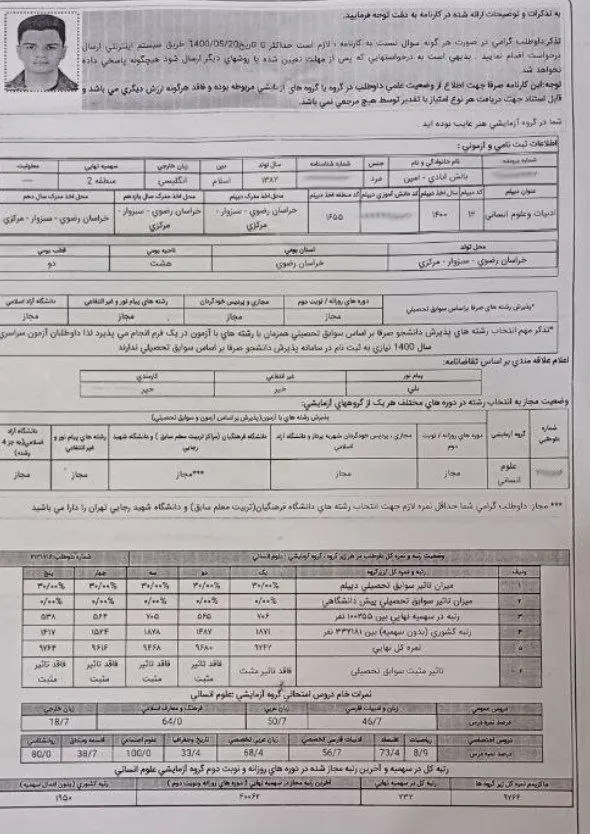 به تذکرات و توضیحات ارائه شده در کارنامه به دقت توجه فرمایید.
تذکر:داوطلب گرامي در صورت هر گونه سوال نسبت به کارنامه ، لازم است حداکثر تا تاریخ1400/05/20 طریق سیستم اینترنتي ارسال
درخواست اقدام نمایید . بدیهي است به درخواستهایي که پس از مهلت تعیین شده یا روشهاي دیگر ارسال شود هیچگونه پاسخي داده
نخواهد شد
توجه:این کارنامه صرفا جهت اطلاع از وضعیت علمي داوطلب در گروه یا گروه هاي آزمایشي مربوطه بوده و فاقد هرگونه ارزش دیگري مي باشد و
قابل استناد جهت دریافت هر نوع امتیاز یا تقدیر توسط هیچ مرجعي نمي باشد.
شما در گروه آزمایشي هنر غایب بوده اید.
اطلاعات ثبت نامي و آزموني :
شماره پرونده نام خانوادگي و نام جنس شماره شناسنامه سال تولد دین زبان خارجي سهمیه نهایي معلولیت
امین مرد ۱۳۸۲ اسلام انگلیسي منطقه 2
عنوان دیپلم کد دیپلم سال اخذ دیپلم کد دانش آموزي دیپلم کد منطقه اخذ دیپلم محل اخذ دیپلم محل اخذ مدرک سال یازدهم محل اخذ مدرک سال دهم
ادبیات وعلوم انساني ۱۴۰۰ ۱۶۵۵ خراسان رضوي - سبزوار - مرکزي خراسان رضوي - سبزوار - مرکزي خراسان رضوي - سبزوار - مرکزي
محل تولد استان بومي ناحیه بومي قطب بومي
خراسان رضوي - سبزوار - مرکزي خراسان رضوي هشت دو
*پذیرش رشته هاي صرفا براساس سوابق تحصیلي دوره هاي روزانه / نوبت دوم مجازي و پردیس خودگردان رشته هاي پیام نور و غیر انتفاعي دانشگاه آزاد اسلامي
مجاز مجاز مجاز مجاز
*تذکر مهم انتخاب رشته هاي پذیرش دانشجو صرفا بر اساس سوابق تحصیلي همزمان با رشته هاي با آزمون در یک فرم انجام مي پذیرد لذا داوطلبان آزمون سراسري
سال 1400 نیازي به ثبت نام در سامانه پذیرش دانشجو صرفا بر اساس سوابق تحصیلي ندارند
اعلام علاقه مندي بر اساس تقاضانامه:
پیام نور غیر انتفاعي کارمندي
بلي خیر خیر
وضعیت مجاز به انتخاب رشته در دوره هاي مختلف هر یک از گروههاي آزمایشي:
پذیرش رشته هاي با آزمون(پذیرش بر اساس آزمون و سوابق تحصیلي)
شماره داوطلبي گروه آزمایشي دوره هاي روزانه / نوبت دوم مجازي ، پردیس خودگردان شهریه پرداز و دانشگاه آزاد اسلامي دانشگاه فرهنگیان (مراکز تربیت معلم سابق ) و دانشگاه شهید رجایي رشته هاي پیام نور و غیر انتفاعي دانشگاه آزاد اسلامي(به جز 4 رشته)
علوم انساني مجاز مجاز مجاز*** مجاز مجاز
*** مجاز: داوطلب گرامي شما حداقل نمره لازم جهت انتخاب رشته هاي دانشگاه فرهنگیان(تربیت معلم سابق) و دانشگاه شهید رجایي تهران را دارا مي باشید
وضعیت رتبه و نمره کل داوطلب در هر زیر گروه - گروه آزمایشي : علوم انساني شماره داوطلب:
ردیف رتبه و نمره کل درزیرگروه یک دو سه چهار پنج
۱ میزان تاثیر سوابق تحصیلي دیپلم ۳۰/۰۰% ۳۰/۰۰% ۳۰/۰۰% ۳۰/۰۰% ۳۰/۰۰%
۲ میزان تاثیر سوابق تحصیلي پیش دانشگاهي ۰/۰۰% ۰/۰۰% ۰/۰۰% ۰/۰۰% ۰/۰۰%
۳ رتبه در سهمیه نهایي بین ۱۰۰۳۵۵ نفر ۷۰۶ ۵۶۵ ۷۰۵ ۵۶۴ ۵۳۸
۴ رتبه کشوري (بدون سهمیه) بین ۳۳۲۱۸۱ نفر ۱۸۷۱ ۱۴۸۷ ۱۸۷۸ ۱۵۲۴ ۱۴۱۷
۵ نمره کل نهایي ۹۲۴۲ ۹۶۸۰ ۹۴۶۸ ۹۶۱۶ ۹۷۶۴
۶ تاثیر مثبت سوابق تحصیلي فاقد تاثیر مثبت فاقد تاثیر مثبت فاقد تاثیر مثبت فاقد تاثیر مثبت فاقد تاثیر مثبت
نمرات خام دروس امتحاني گروه آزمایشي :علوم انساني
دروس عمومي زبان و ادبیات فارسي زبان عربي فرهنگ و معارف اسلامي زبان خارجي
درصد نمره درس 46/7 50/7 64/0 18/7
دروس اختصاصي ریاضیات اقتصاد ادبیات فارسي تخصصي زبان عربي تخصصي تاریخ وجغرافیا علوم اجتماعي فلسفه ومنطق روانشناسي
درصد نمره درس 8/9 73/4 56/7 68/4 33/4 100/0 38/7 80/0
رتبه کل در سهمیه و آخرین رتبه مجاز شده در دوره هاي روزانه و نوبت دوم گروه آزمایشي علوم انساني
ماکزیمم نمره کل زیر گروه ها رتبه کل در سهمیه نهایي آخرین رتبه مجاز در سهمیه نهایي ( دوره هاي روزانه ونوبت دوم ) رتبه کشوري (بدون اعمال سهمیه )
۹۷۶۴ ۷۳۲ ۴۰۰۶۲ ۱۹۵۰